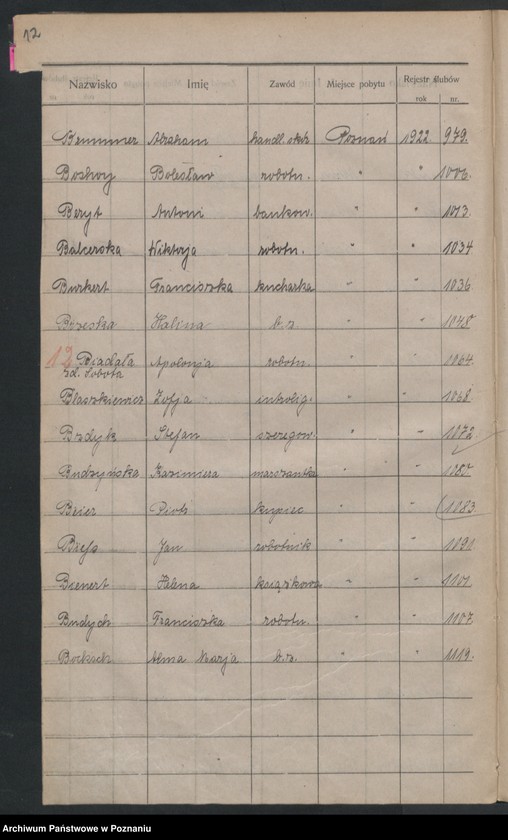 12
Nazwisko Imię Zawód Miejsce pobytu Rejestr ślubów
rok nr.
Bemmmer Abraham handl. Poznań 1922 979.
Boskwy Bolesław robotn. " " 1006.
Beryt Antoni bankow. " " 1013.
Balcerska Wiktorja robotn. " " 1034
Burkert Franciszka kucharka " " 1036
Brzeska Halina b. z " " 1048
12 Biadała Apolonja robotn. " " 1064.
zd. Sobota
Błaszkiewicz Zofja introlig. " " 1068.
Brdyk Stefan szeregow. " " 1072
Budzyńska Kazimiera " " 1085
Beier Piotr kupiec " " 1083
Jan robotnik " " 1091
Bienert Helena książkowa " " 1101.
Budych Franciszka robotn. " " 1107.
Alma Marja b. z. " " 1119.
Archiwum Państwowe w Poznaniu